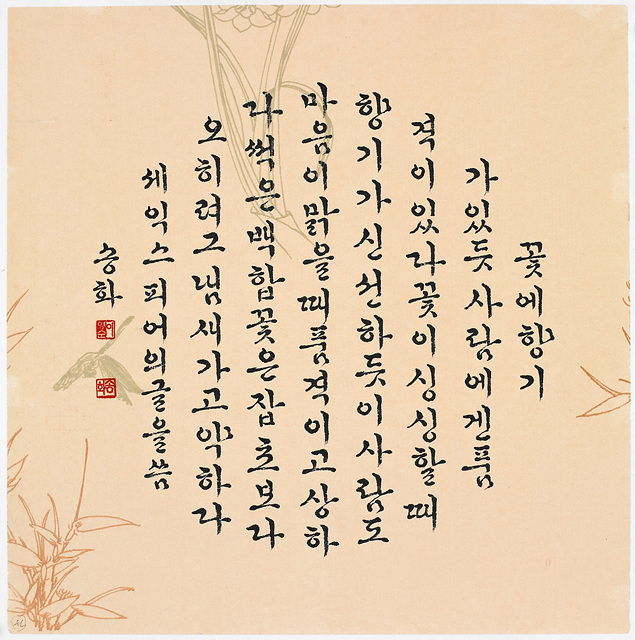 꽃에향기
가있듯사람에겐품
격이있다꽃이싱싱할때
향기가신선하듯이사람도
마음이맑을때품격이고상하
다썩은백합꽃은잡초보다
오히려그냄새가고약하다
세익스피어의글을씀